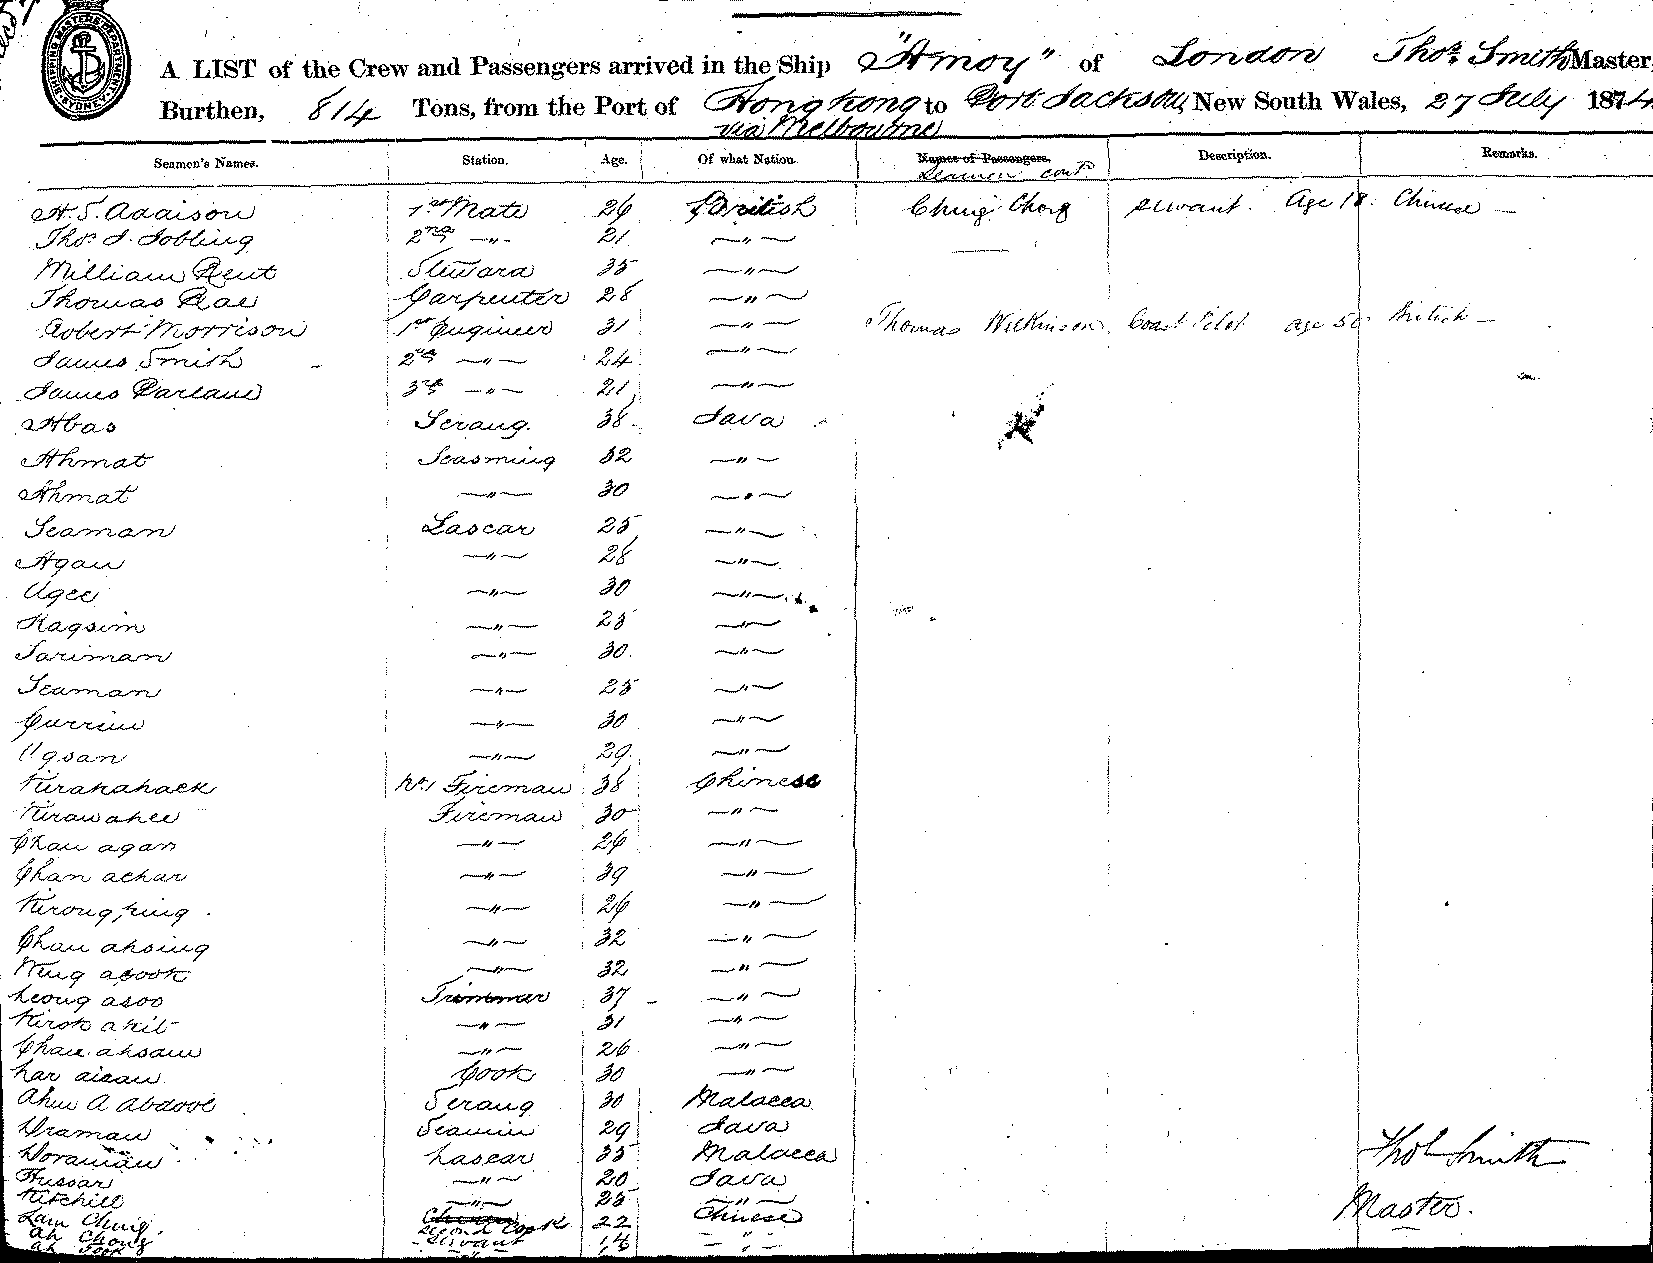 SHIPPING MASTER'S DEPARTMENT SYDNEY
A LIST of the Crew and Passengers arrived in the Ship "Amoy" of London Thos. Smith Master,
Burthen, 814 Tons, from the Port of Hong Kong to Port Jackson, New South Wales, 27 July 1874
via Melbourne
Seamen's Names. Station. Age. Of what Nation. Names of Passengers. Description. Remarks.
Seamen cont
H. S. Addison 1st Mate 26 British Ching Chong servant. Age 18. Chinese —
Thos. J. Jobling 2nd —"— 21 —"—
William Kent Steward 35 —"—
Thomas Rae Carpenter 28 —"—
Robert Morrison 1st Engineer 31 —"— Thomas Wilkinson, Coast Pilot age 50 British —
James Smith 2nd —"— 24 —"—
James Parlane 3rd —"— 21 —"—
Abas Serang. 38 Java
Ahmat 32 —"—
Ahmat —"— 30 —"—
Seaman Lascar 25 —"—
Agan —"— 28 —"—
Ugee —"— 30 —"—
Kagsim —"— 25 —"—
Sariman —"— 30 —"—
Seaman —"— 25 —"—
Currim —"— 30 —"—
Ugsan —"— 29 —"—
No 1 Fireman 38 Chinese
Fireman 30 —"—
Chau agan —"— 26 —"—
Chan achar —"— 39 —"—
—"— 26 —"—
Chau ahsing —"— 32 —"—
—"— 32 —"—
Leong asoo Trimmer 37 —"—
—"— 31 —"—
Chau ahsam —"— 26 —"—
Cook 30 —"—
Abdool Serang 30 Malacca
Draman 29 Java
Doraman Lascar 35 Malacca
Hussar —"— 20 Java
Kitchill —"— 25 —"—
Lam Ching second Cook 22 Chinese
Ah Chong servant 14 —"—
Ah
Thos Smith
Master.